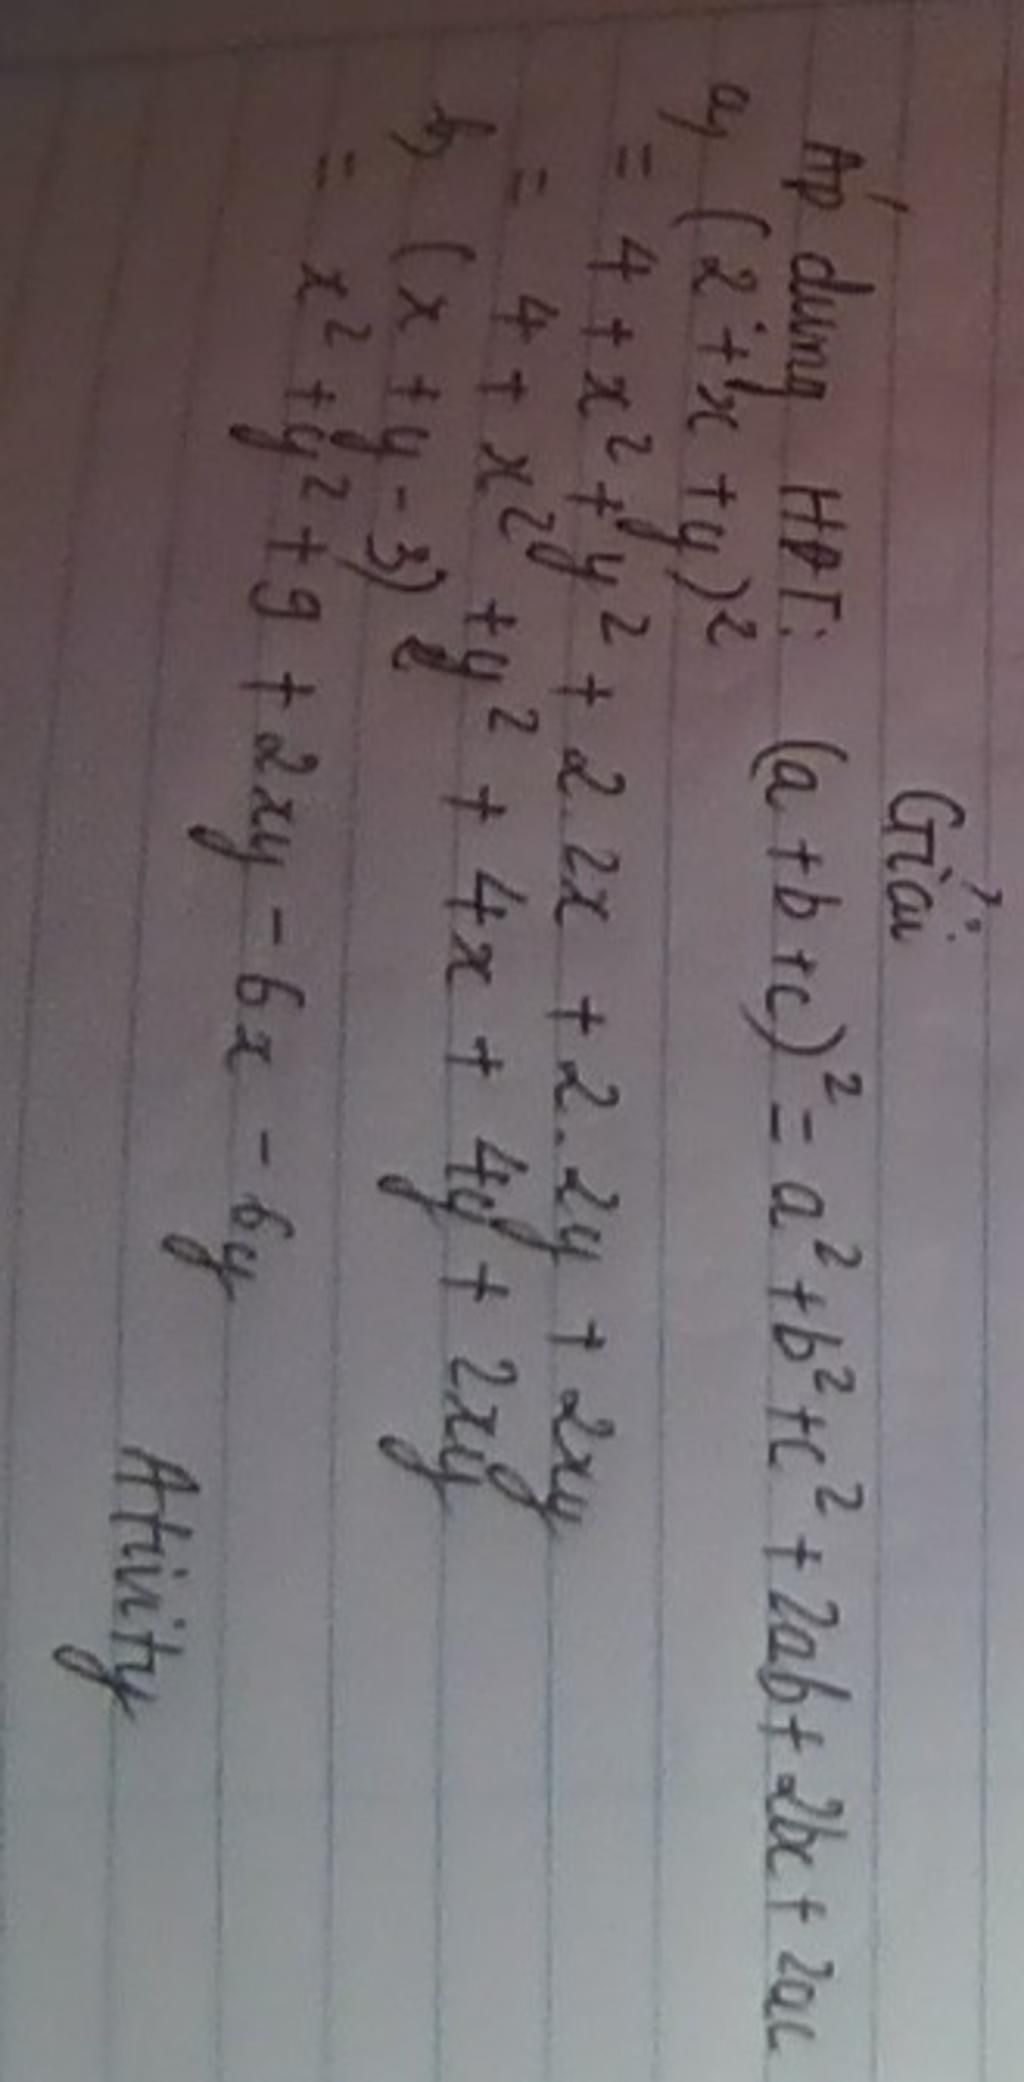 Giải
Áp dụng HĐT: (a+b+c)² = a²+b²+c²+2ab+2bc+2ac
a, (2+x+y)²
= 4 + x² + y² + 2.2x + 2.2y + 2xy
= 4 + x² + y² + 4x + 4y + 2xy
b, (x+y-3)²
= x² + y² + 9 + 2xy - 6x - 6y
Atinity